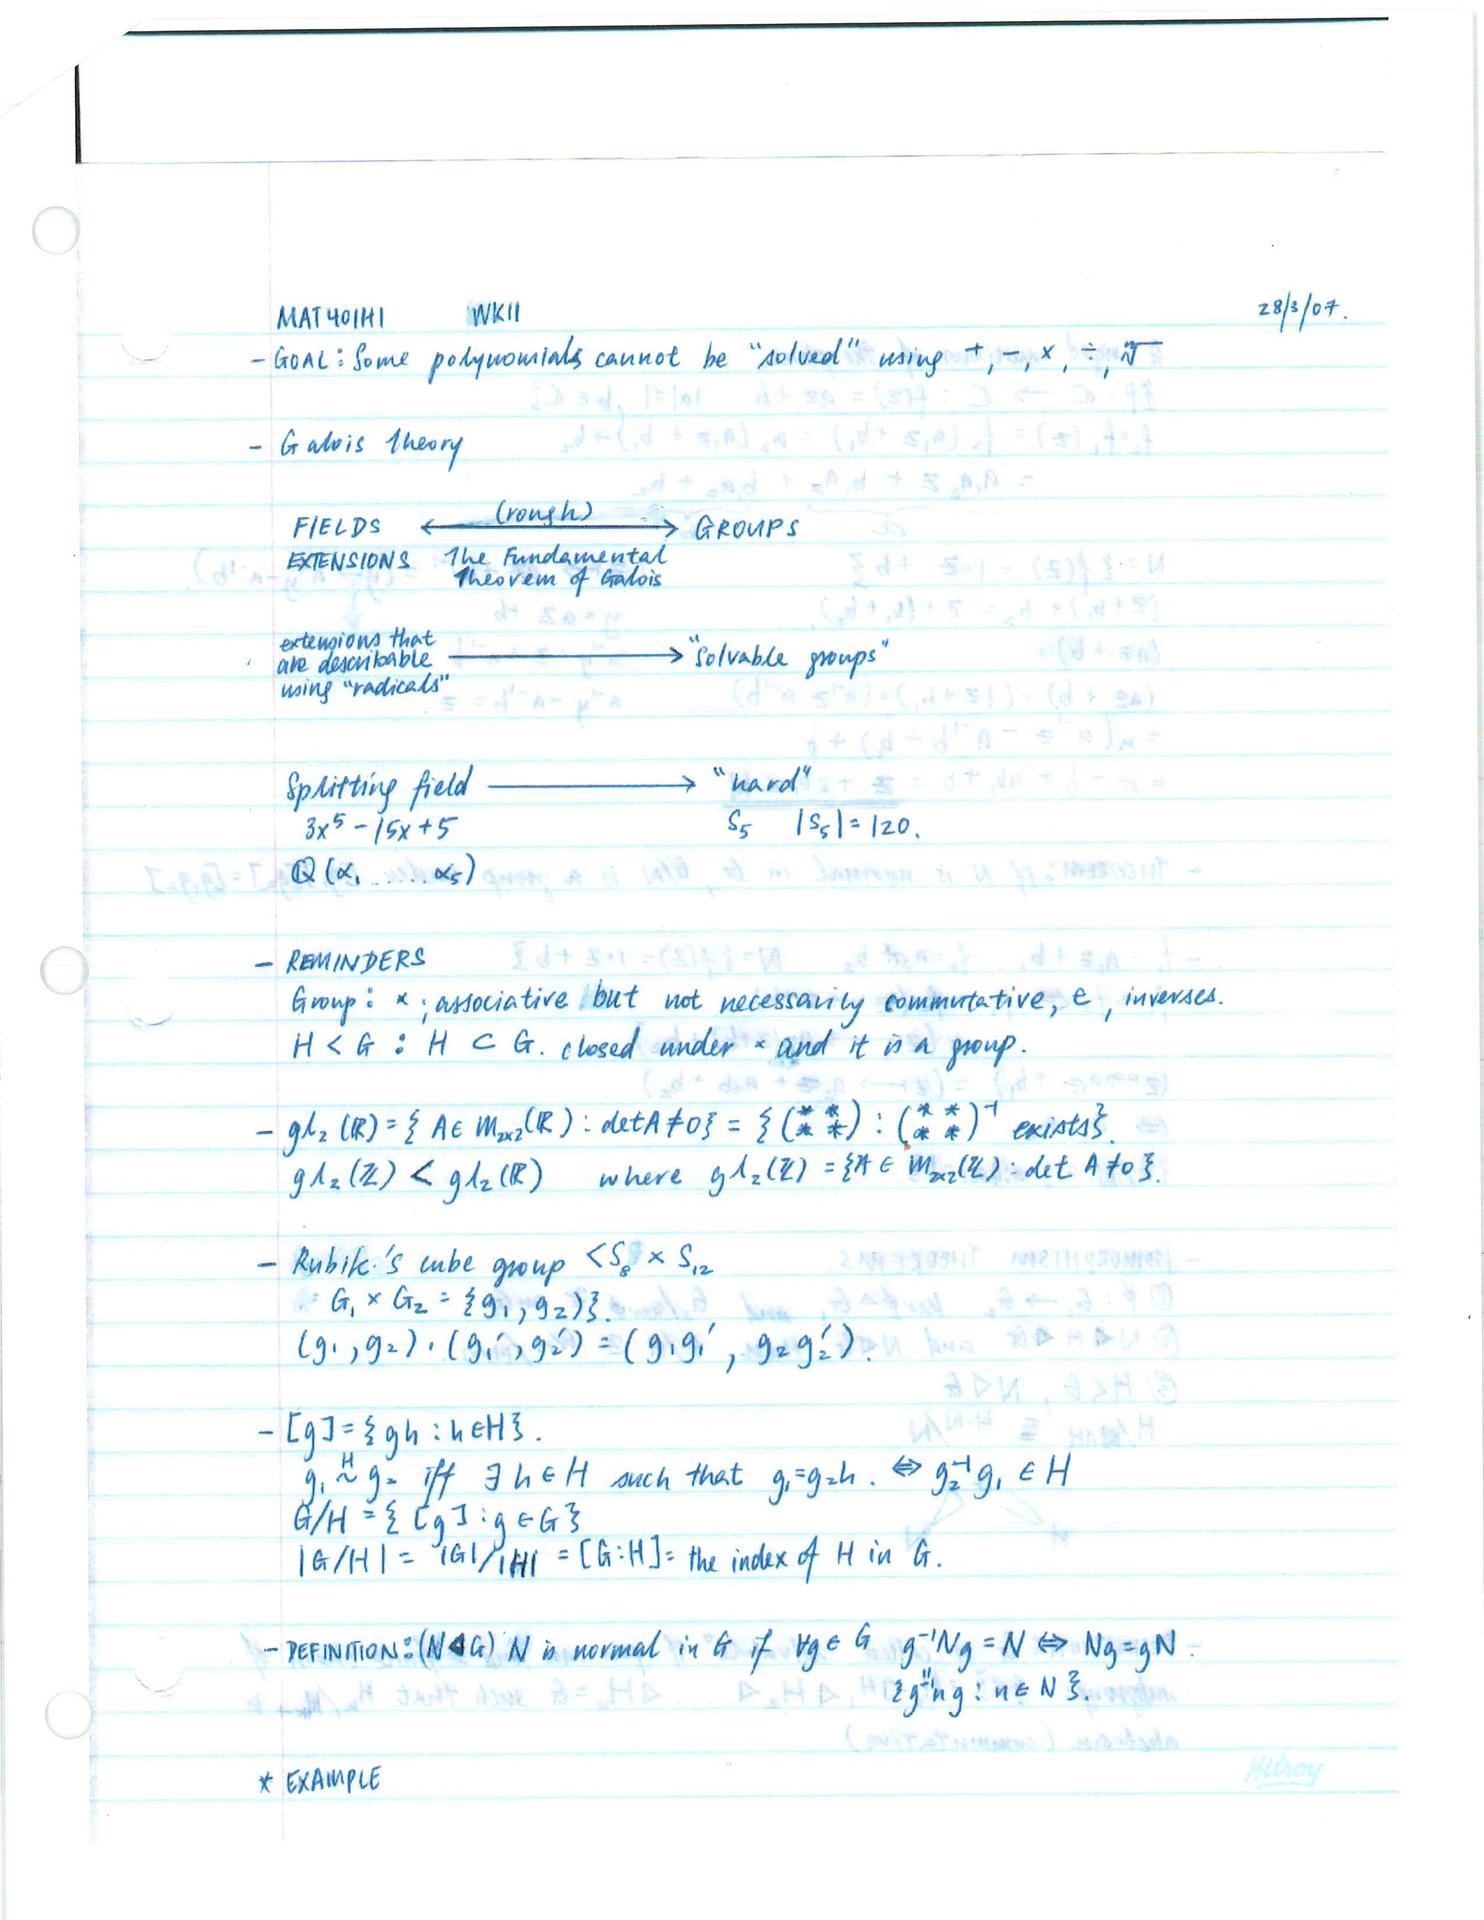 MAT401H1 WK11 28/3/07.
- GOAL: Some polynomials cannot be "solved" using +, -, ×, ÷, ⁿ√
- Galois Theory
(rough)
FIELDS ⟷ GROUPS
EXTENSIONS The Fundamental
Theorem of Galois
extensions that
are describable ⟶ "solvable groups"
using "radicals"
Splitting field ⟶ "hard"
3x⁵ - 15x + 5 S₅ |S₅| = 120.
ℚ(α₁ ...... α₅)
- REMINDERS
Group: *; associative but not necessarily commutative, e, inverses.
H < G : H ⊂ G. closed under * and it is a group.
- gl₂(ℝ) = { A ∈ M₂ₓ₂(ℝ) : det A ≠ 0 } = { (* * * *) : (* * * *)⁻¹ exists }.
gl₂(ℤ) < gl₂(ℝ) where gl₂(ℤ) = { A ∈ M₂ₓ₂(ℤ) : det A ≠ 0 }.
- Rubik's cube group < S₈ × S₁₂
G₁ × G₂ = { g₁, g₂) }.
(g₁, g₂) · (g₁', g₂') = (g₁g₁', g₂g₂').
- [g] = { gh : h ∈ H }.
g₁ ~ᴴ g₂ iff ∃ h ∈ H such that g₁ = g₂h. ⇔ g₂⁻¹ g₁ ∈ H
G/H = { [g] : g ∈ G }
|G/H| = |G|/|H| = [G:H] = the index of H in G.
- DEFINITION: (N ◁ G) N is normal in G if ∀g ∈ G g⁻¹Ng = N ⇔ Ng = gN.
"
{ g⁻¹ng : n ∈ N }.
* EXAMPLE
Hilroy